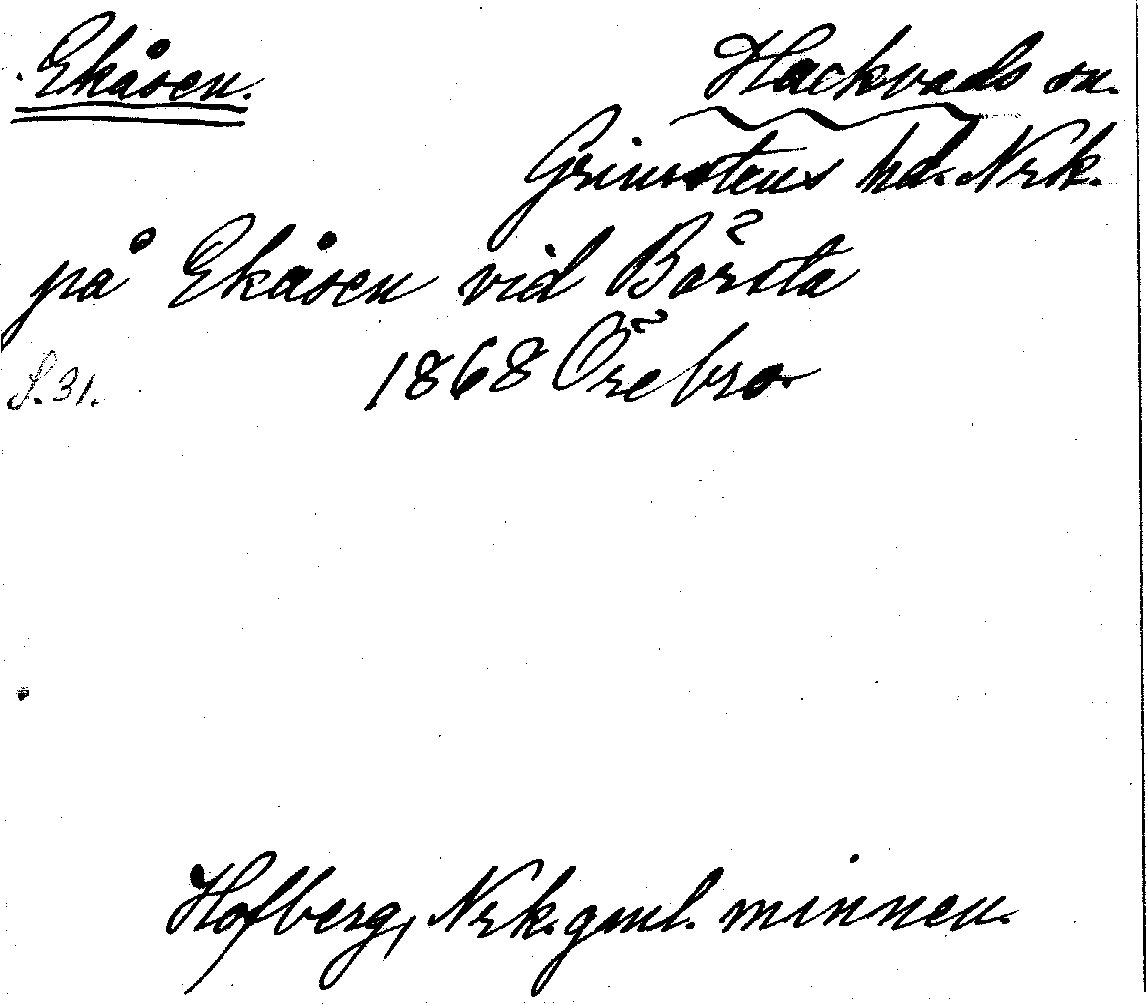 Ekåsen.
Hackvads sn.
Grimstens hd. Nrk.
på Ekåsen vid Börsta
1868 Örebro
S. 31.
Hofberg, Nrk. gml. minnen.